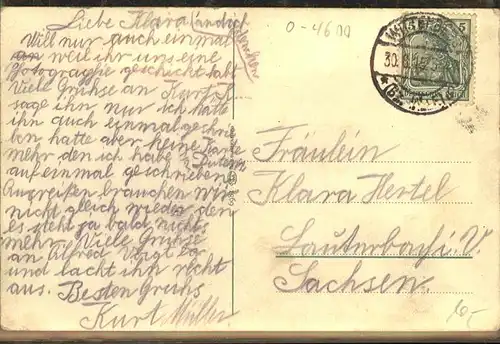 Liebe Klara
Will nur auch einmal
weil ihr uns eine
Photographie geschickt habt
Viele Grühse an Kurt S.
sage ihn nur ich hätte
ihn auch einmal geschrie
ben hatte aber keine Karte
mehr den ich habe
auf einmal geschrieben
brauchen wir
nicht gleich wieder den
es steht ja bald nichts
mehr. Viele Grühse
an Alfred Voigt er
und lacht ihn recht
aus. Besten Gruhs
Kurt Müller.
0-4600
30.8.12
5
Fräulein
Klara Hertel
Lauterbach i. V.
Sachsen.
6,-